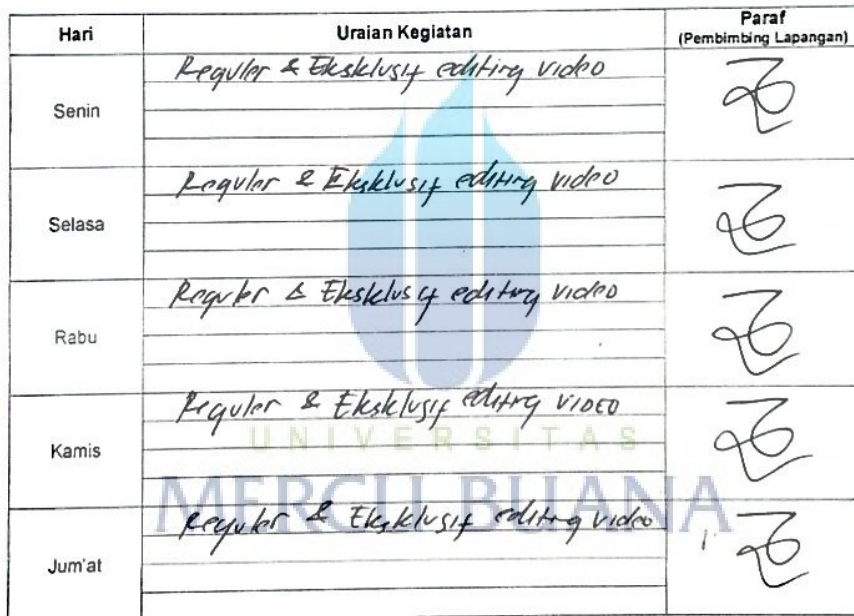 Hari Uraian Kegiatan Paraf
(Pembimbing Lapangan)
Senin Reguler & Eksklusif editing video
Selasa Reguler & Eksklusif editing video
Rabu Reguler & Eksklusif editing video
Kamis Reguler & Eksklusif editing VIDEO
UNIVERSITAS
MERCU BUANA
Jum'at Reguler & Eksklusif editing video